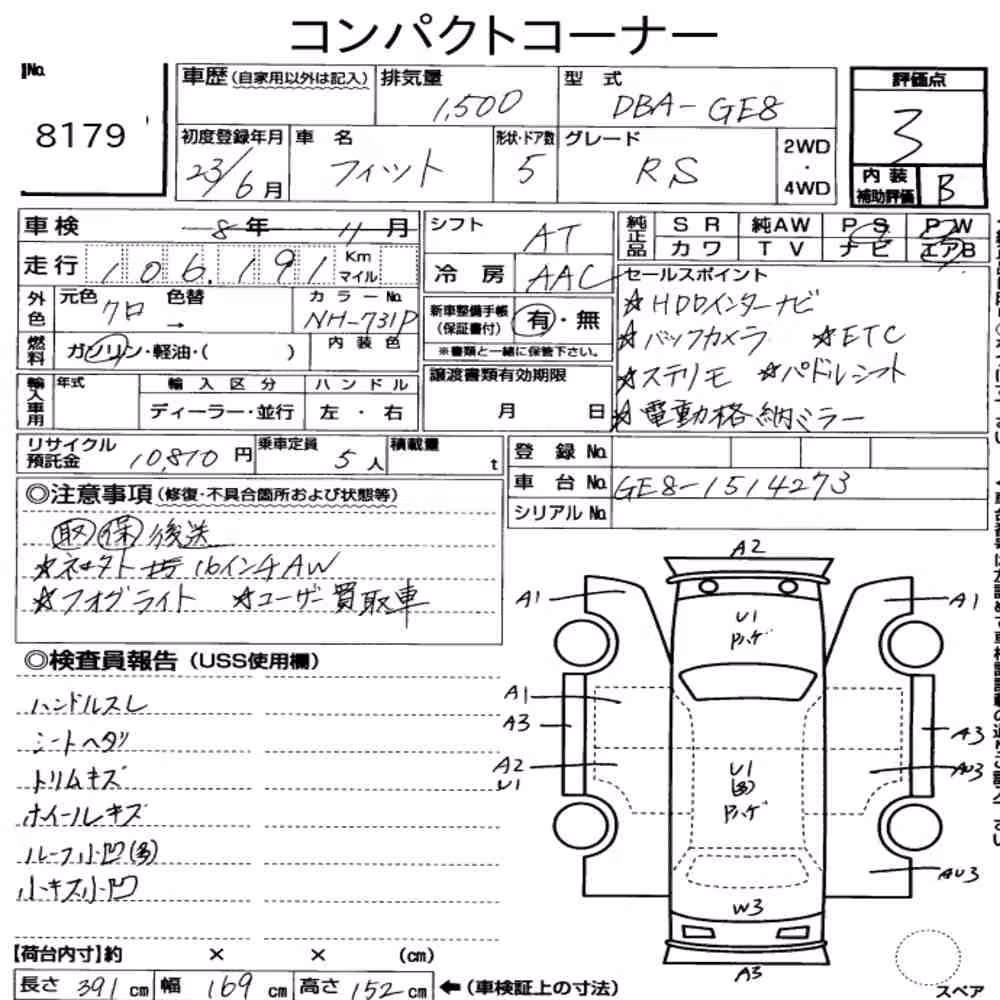 コンパクトコーナー
No. 8179
車歴(自家用以外は記入) 排気量 1,500 型式 DBA-GE8
評価点 3
初度登録年月 23/6月 車名 フィット 形状・ドア数 5 グレード RS 2WD・4WD
内装補助評価 B
車検 8年 11月
走行 106,191 Km マイル
シフト AT
冷房 AAC
純正品 SR 純AW PS PW
カワ TV ナビ エアB
外色 元色 クロ 色替 → カラーNo. NH-731P
燃料 ガソリン・軽油・( ) 内装色
新車整備手帳(保証書付) 有・無
※書類と一緒に保管下さい。
セールスポイント
☆HDDインターナビ
☆バックカメラ ☆ETC
☆ステリモ ☆パドルシフト
☆電動格納ミラー
輸入車用 年式 輸入区分 ハンドル
ディーラー・並行 左・右
譲渡書類有効期限
月 日
リサイクル預託金 10,870円 乗車定員 5人 積載量 t
登録No.
車台No. GE8-1514273
シリアルNo.
◎注意事項(修復・不具合箇所および状態等)
取 保 後送
16インチAW
☆フォグライト ☆ユーザー買取車
◎検査員報告(USS使用欄)
ハンドルスレ
シートヘタリ
トリムキズ
ホイールキズ
ルーフ小凹(多)
小キズ小凹
A2
A1 A1
U1
Pハゲ
A1
A3 A3
A2 U1 AU3
U1
(多)
Pハゲ
AU3
W3
A3
スペア
【荷台内寸】約 × × (cm)
長さ 391cm 幅 169cm 高さ 152cm ←(車検証上の寸法)